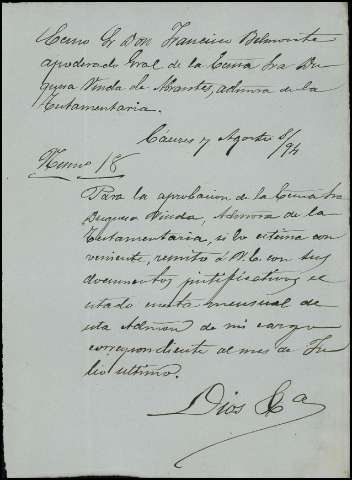 Excmo Sr Don Francisco Belmonte
apoderado Gral de la Excma Sra Du
quesa Viuda de Abrantes, admora de la
Testamentaria.
Cáceres y Agosto 8/94
Numo 18
Para la aprobacion de la Excma Sra
Duquesa Viuda, Admora de la
Testamentaria, si lo estima con
veniente, remito á V.E. con sus
documentos justificativos el
estado cuenta mensual de
esta Admon de mi cargo
correspondiente al mes de Ju
lio ultimo.
Dios &a